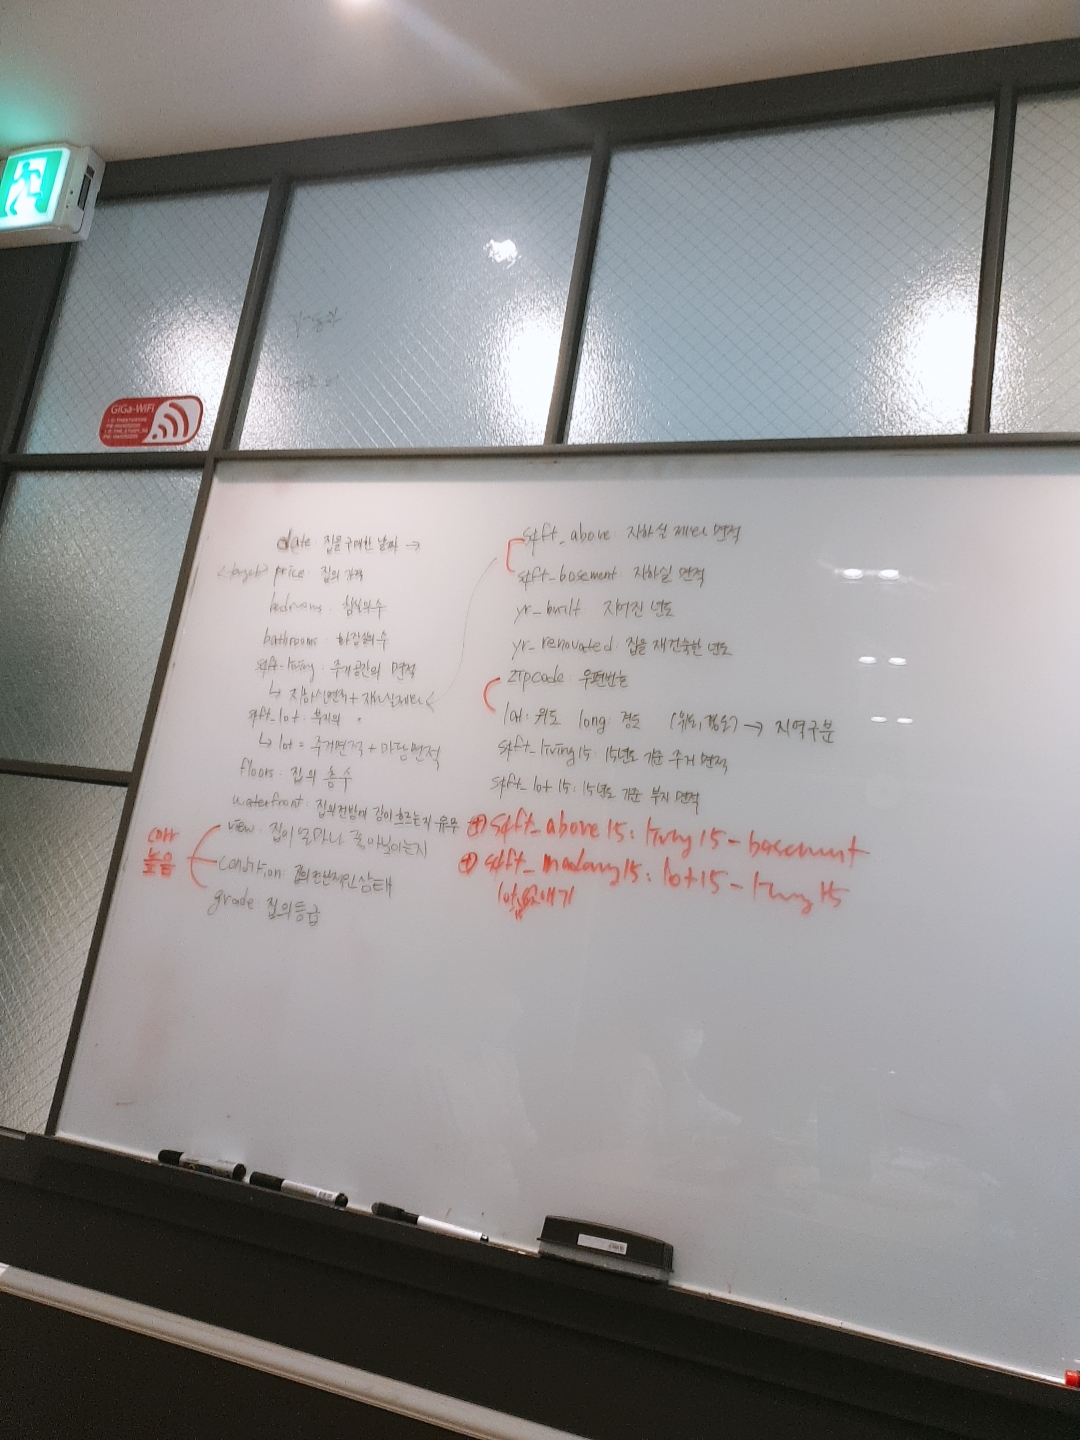 GiGa-WiFi
date: 집을 구매한 날짜 →
<target> price: 집의 가격
bedrooms: 침실의 수
bathrooms: 화장실의 수
sqft_living: 주거공간의 면적
↳ 지하실면적 +
sqft_lot: 부지의
↳ lot = 주거면적 + 마당면적
floors: 집의 층수
waterfront: 집의 전방에 강이 흐르는지 유무
view: 집이 얼마나 좋아 보이는지
condition: 집의 전반적인 상태
grade: 집의 등급
corr
높음
sqft_above: 지하실 제외 면적
sqft_basement: 지하실 면적
yr_built 지어진 년도
yr_renovated: 집을 재건축한 년도
zipcode: 우편번호
lat: 위도 long: 경도 (위도, 경도) → 지역구분
sqft_living15: 15년도 기준 주거 면적
sqft_lot15: 15년도 기준 부지 면적
⊕ sqft_above15: living15 - basement
⊕ sqft_madang15: lot15 - living15